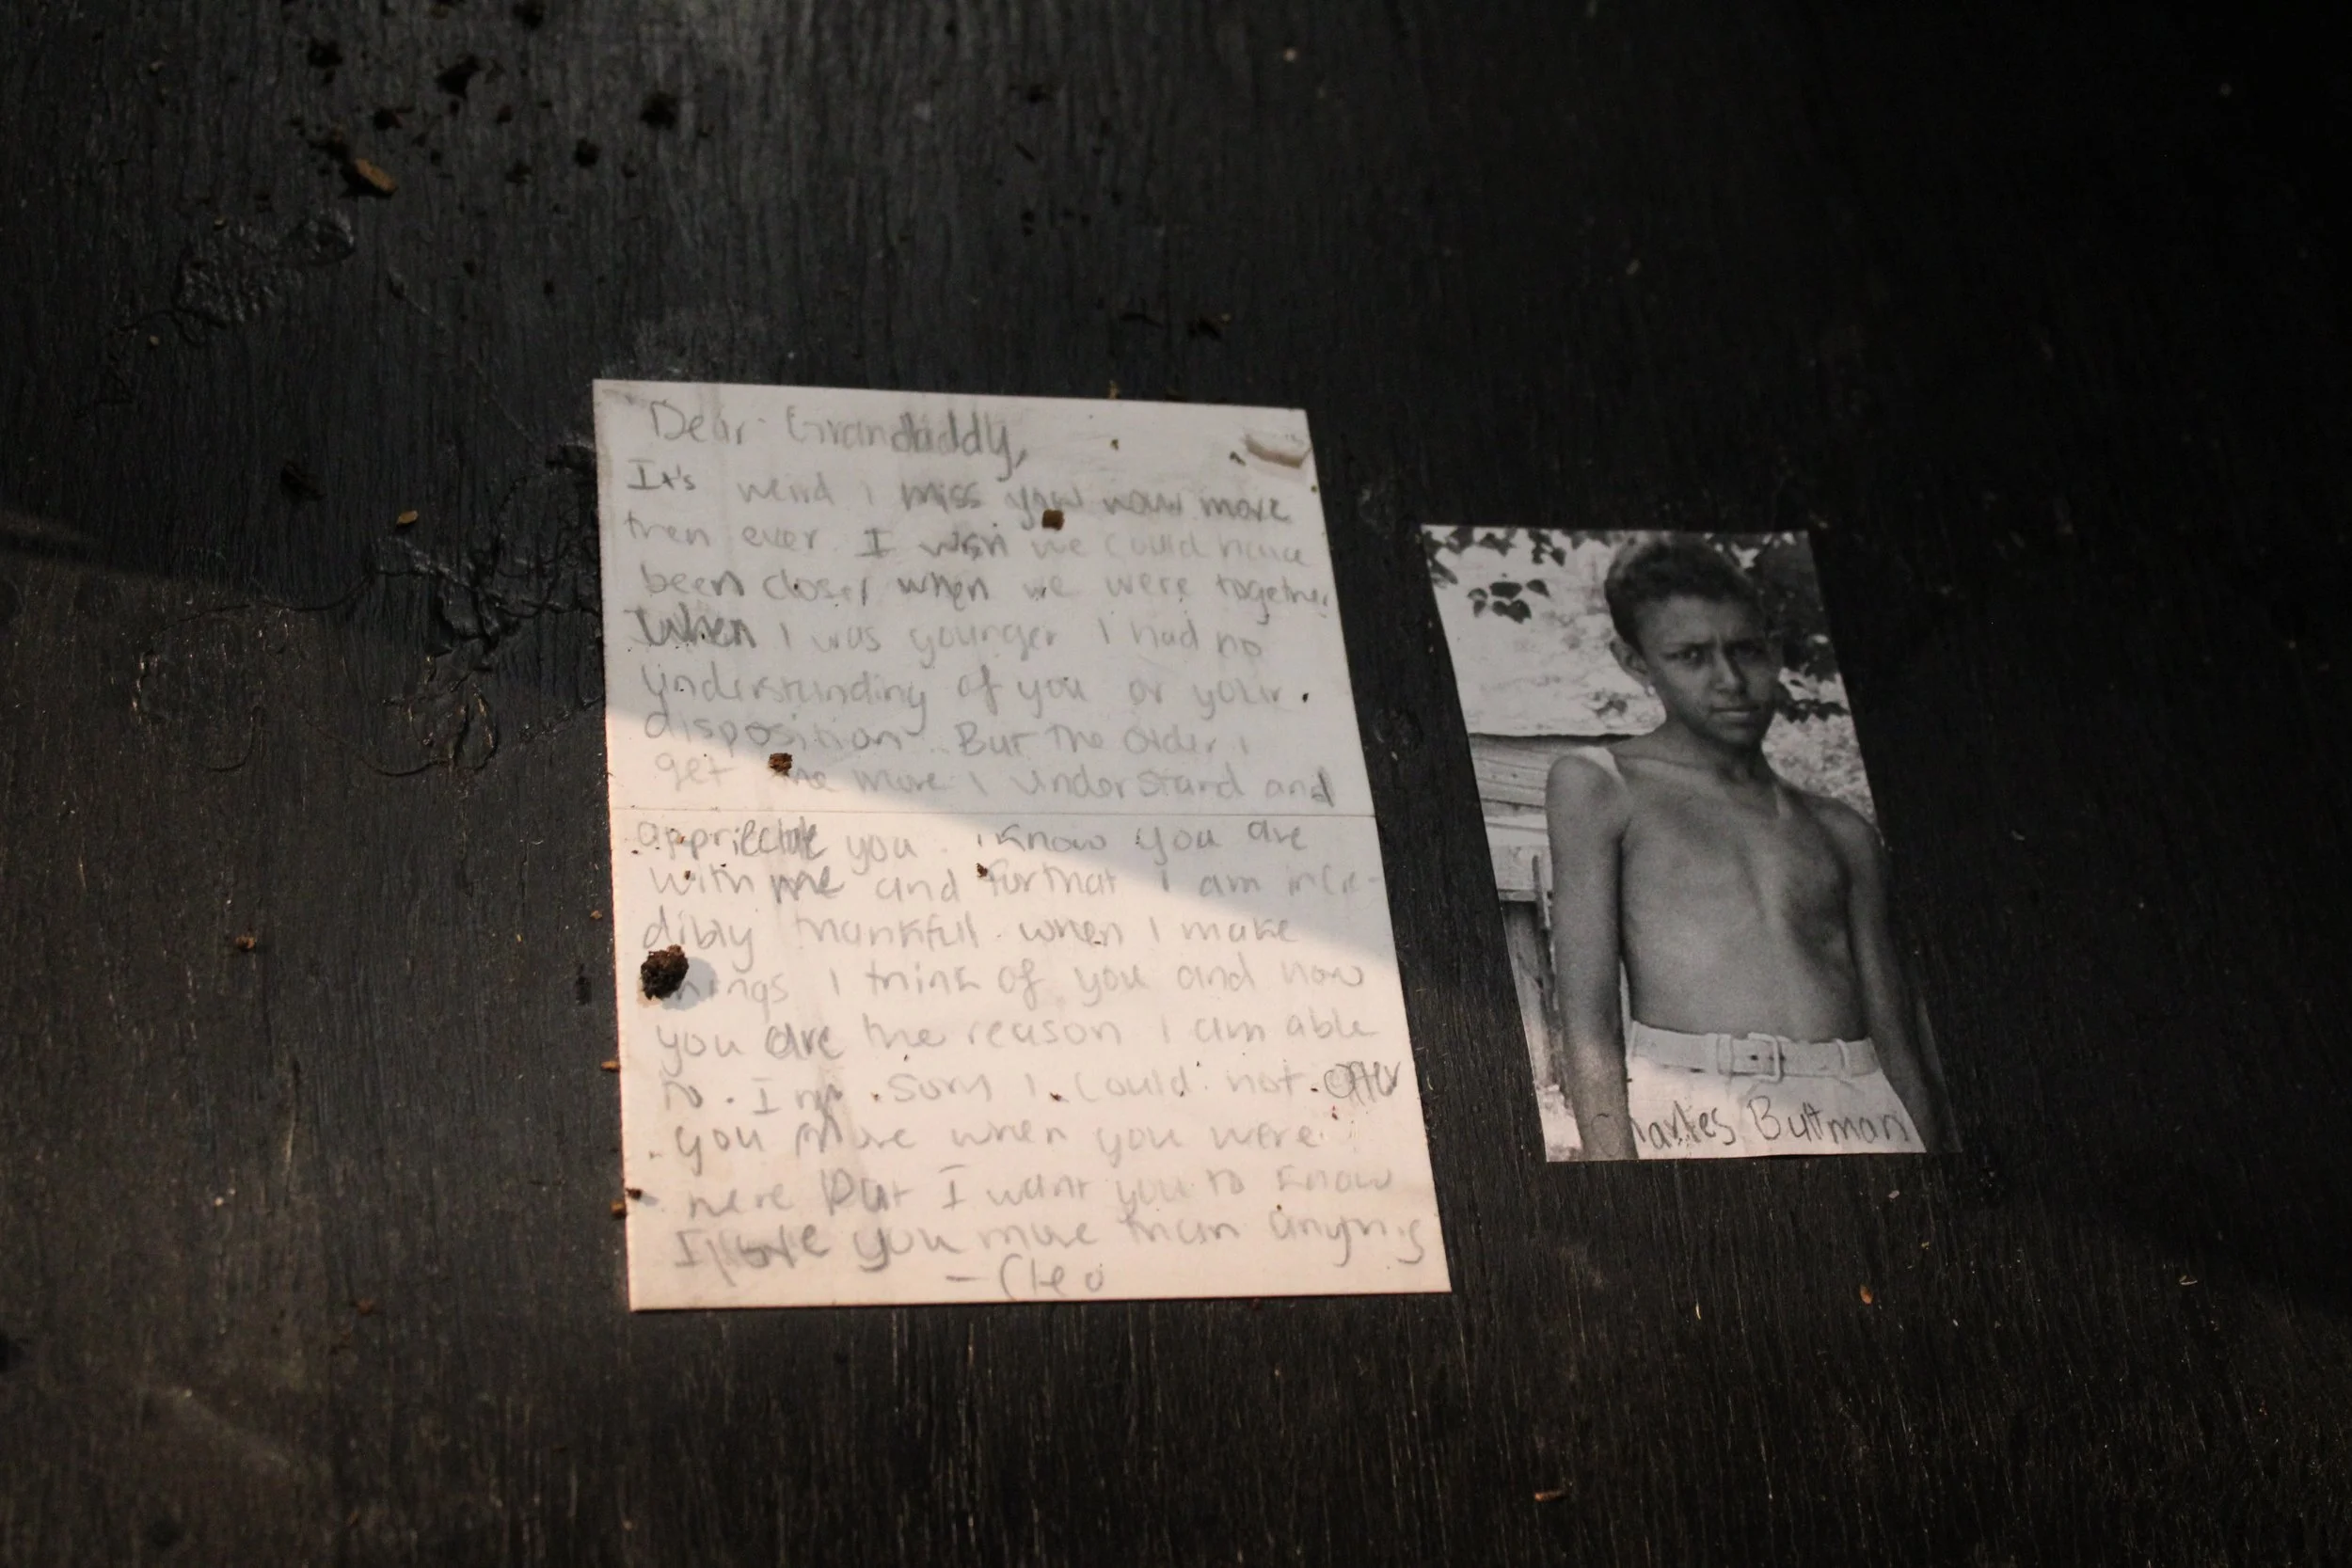 Dear Grandaddy,
It's weird I miss you now more
then ever I wish we could have
been closer when we were together
When I was younger I had no
understanding of you or your
disposition. But the older I
get the more I understand and
appreciate you. I know you are
with me and for that I am incre-
dibly thankful when I make
things I think of you and how
you are the reason I am able
to. I'm sorry I could not offer
you more when you were
here but I want you to know
I love you more than anything
- Cleo
Charles Buttman